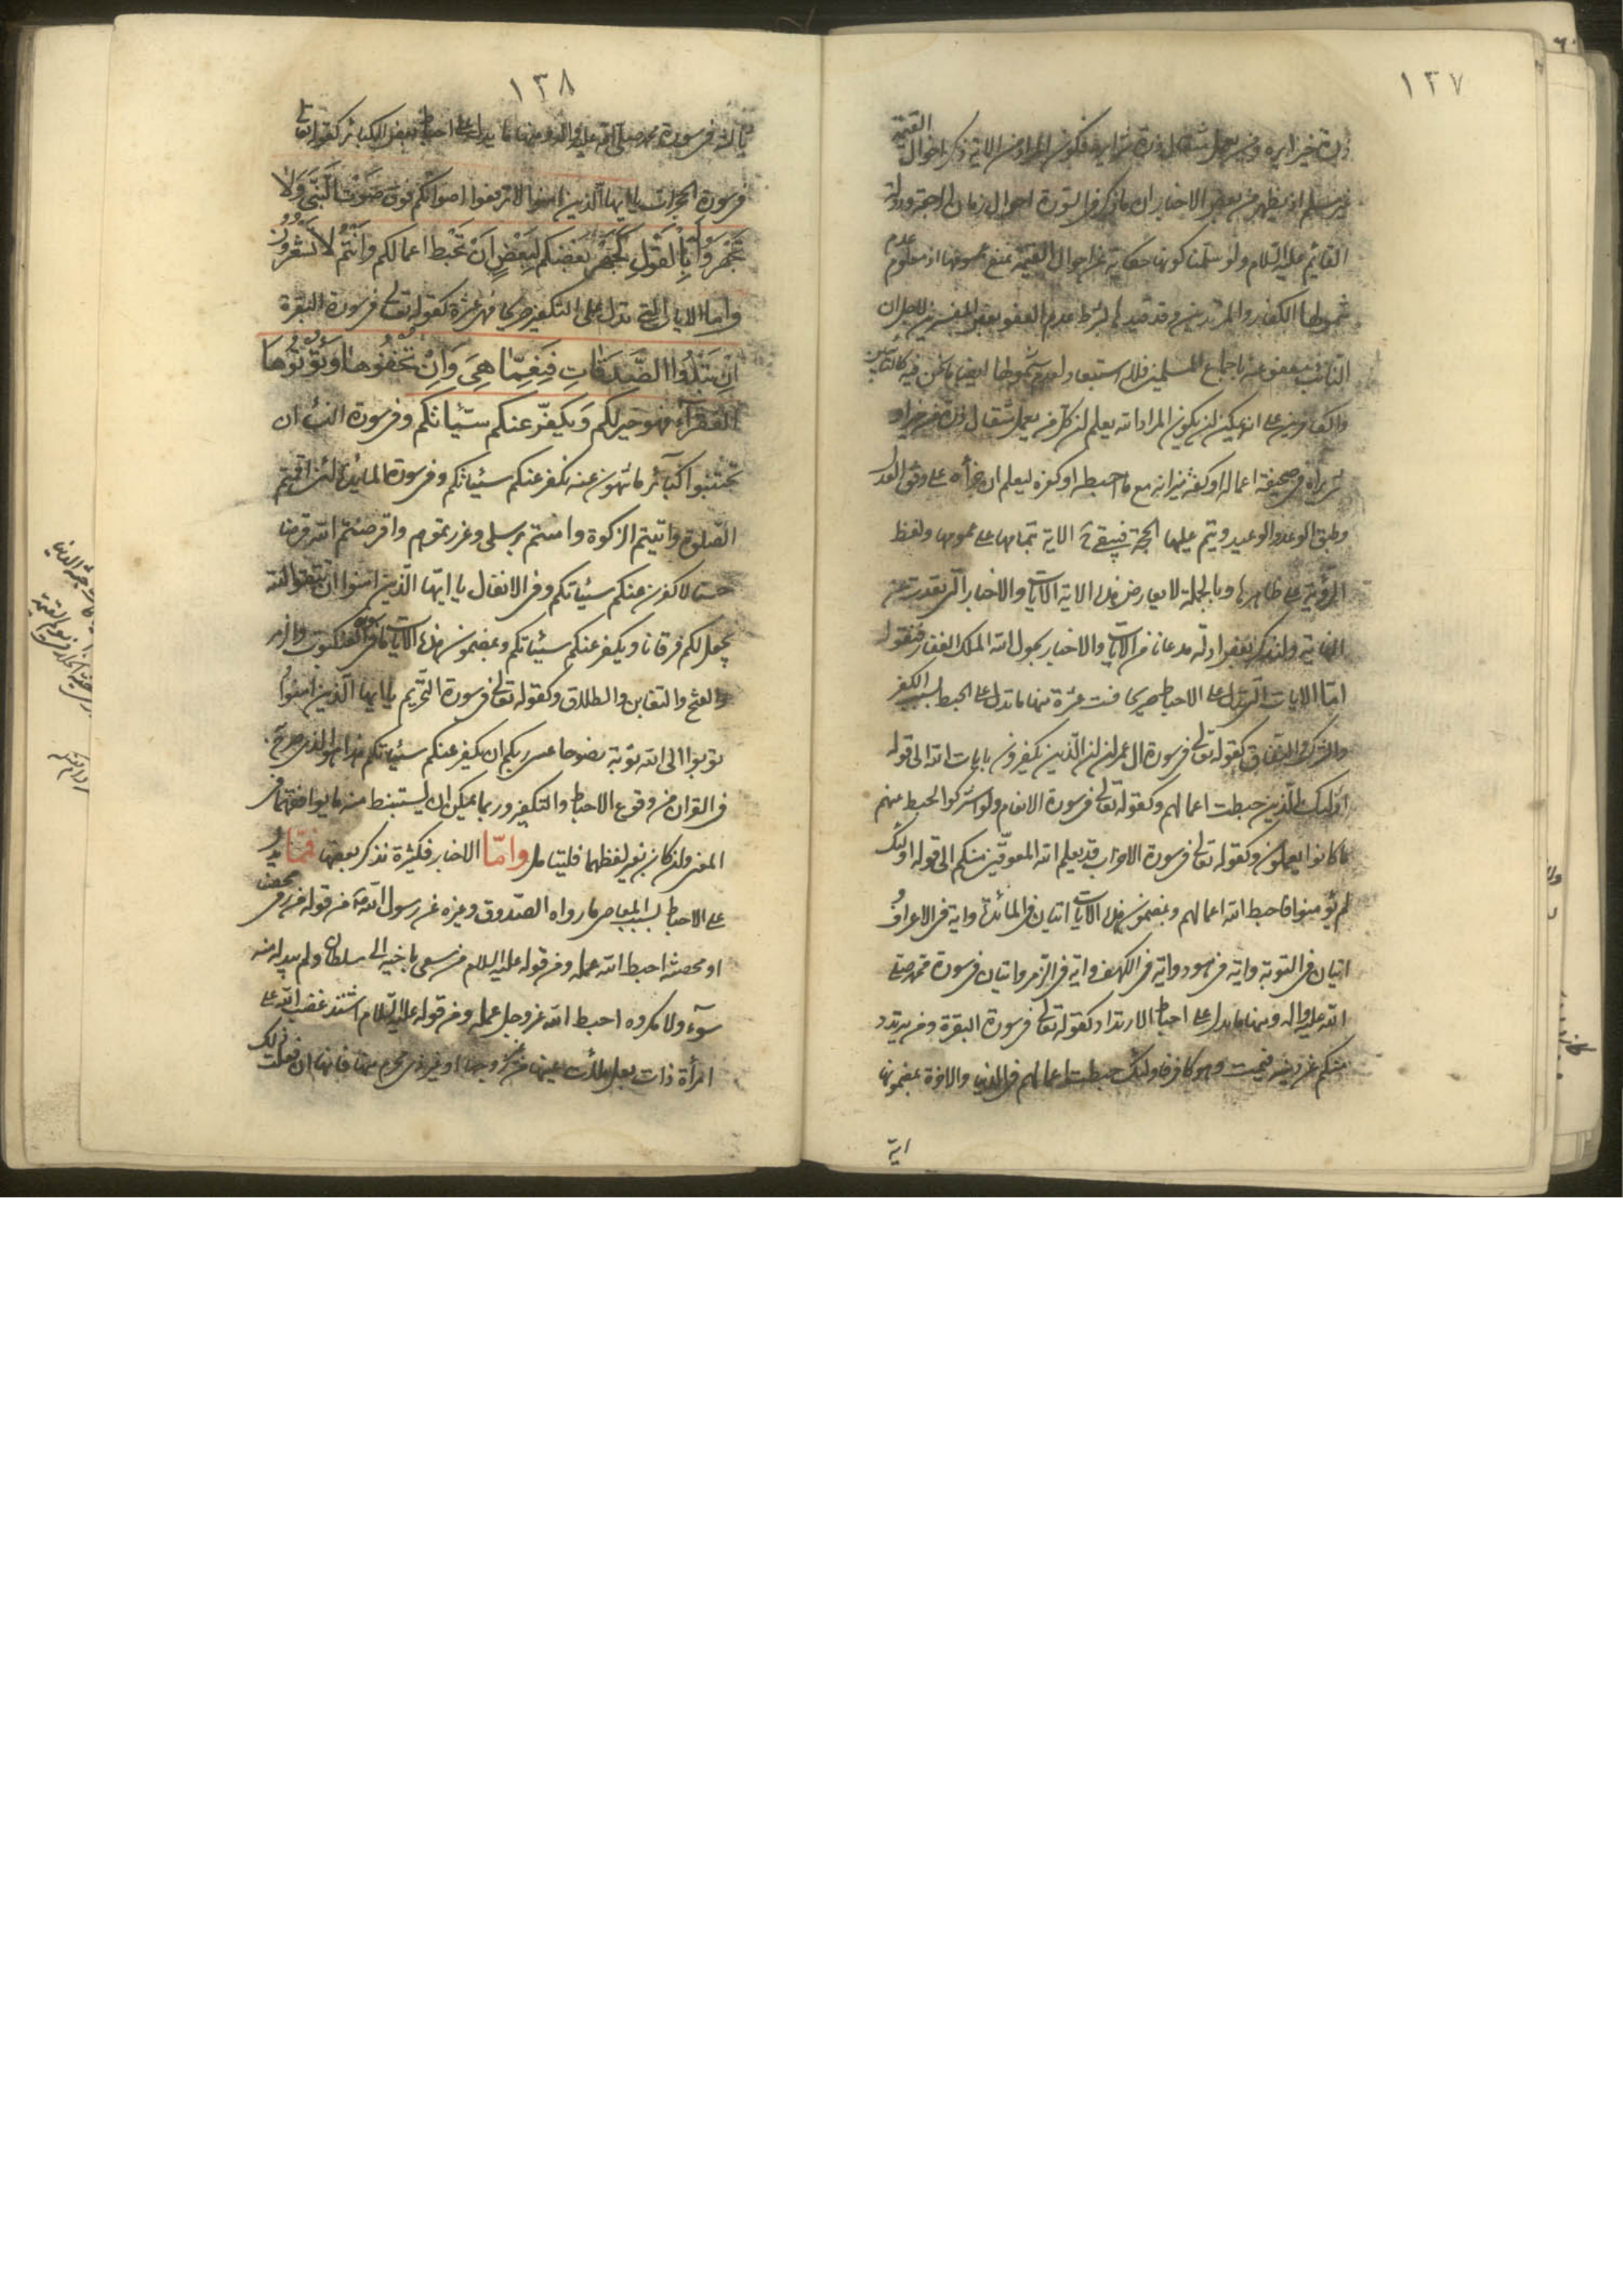 ١٣٧
ذرة خيرا يره ومن يعمل مثقال ذرة شرا يره فكون المراد من الاية ذكر احوال القيمة
غير مسلم اذ يظهر من بعض الاخبار ان ما ذكر فى السورة احوال زمان الرجعة ودولة
القائم عليه السلام ولو سلمنا كونها حكاية عن احوال القيمة نمنع عمومها اذ معلوم عدم
شمولها الكفار والمرتدين وقد قيد بشرط عدم العفو بعض المفسرين لاجل ان
التائب معفو عنه باجماع المسلمين فلا استبعاد لعدم شمولها ايضا ما نحن فيه كالتائبين
والكافرين على انه يمكن ان يكون المراد انه يعلم ان كل من يعمل مثقال ذرة من خير او
شر يراه فى صحيفة اعماله او كفة ميزانه مع ما احبطه او كفره ليعلم ان جزأه على وفق العدل
وطبق الوعد والوعيد ويتم عليها الحجة فيبقى الاية بتمامها على عمومها ولفظ
الرؤية على ظاهرها وبالجملة لا يعارض هذه الاية الايات والاخبار التى تقدمت
ولنذكر بعض ادلة مدعانا من الايات والاخبار بحول الله الملك الغفار فنقول
امّا الايات التى تدل على الاحباط صريحا فست عشرة منها ما تدل على الحبط بسبب الكفر
والشرك والنفاق كقوله تعالى فى سورة ال عمران ان الّذين يكفرون بايات الله الى قوله
اولئك الّذين حبطت اعمالهم وكقوله تعالى فى سورة الانعام ولو اشركوا لحبط عنهم
ما كانوا يعملون وكقوله تعالى فى سورة الاحزاب قد يعلم الله المعوّقين منكم الى قوله اولئك
لم يؤمنوا فاحبط الله اعمالهم وبمضمون هذه الايات ايتان فى المائدة واية فى الاعراف و
ايتان فى التوبة واية فى هود واية فى الكهف واية فى الزمر وايتان فى سورة محمد صلى
الله عليه واله ومنها ما يدل على احباط الارتداد كقوله تعالى فى سورة البقرة ومن يرتدد
منكم عن دينه فيمت وهو كافر فاولئك حبطت اعمالهم فى الدنيا والاخرة بمضمونها
اية
١٣٨
ثالثة فى سورة محمد صلى الله عليه واله ومنها ما يدل على احباط بعض الكبائر كقوله تعالى
فى سورة الحجرات يا ايها الّذين امنوا لا ترفعوا اصواتكم فوق صَوْت النَّبىِّ وَلَا
تَجْهَرُوا بِالْقَوْلِ كَجَهْرِ بَعْضِكُم لِبَعْضٍ اَنْ تَحْبَط اعمالكم وَاَنْتُم لَا تَشْعُرُونَ
واما الايات التى تدل على التكفير صريحا فهى عشرة كقوله تعالى فى سورة البقرة
اِنْ تُبْدُوا الصَّدَقَاتِ فَنِعِمَّا هِىَ وَاِنْ تُخْفُوهَا وَتُؤْتُوهَا
الفُقَرآء فهو خير لكم وَيكفّر عنكم سيّئاتكم وفى سورة النساء ان
تجتنبوا كبائر ما تنهون عنه نكفر عنكم سيئاتكم وفى سورة المائدة لئن اقمتم
الصلوة واتيتم الزكوة وامنتم برسلى وعزرتموهم واقرضتم الله قرضا
حسنا لاكفرن عنكم سيئاتكم وفى الانفال يا ايها الّذين امنوا ان تتقوا الله
يجعل لكم فرقانا ويكفر عنكم سيئاتكم وبمضمون هذه الايات ما فى سورة العنكبوت والزمر
والفتح والتغابن والطلاق وكقوله تعالى فى سورة التحريم يا ايها الّذين امنوا
توبوا الى الله توبة نصوحا عسى ربكم ان يكفر عنكم سيئاتكم هذا هو الذى صرح
فى القران من وقوع الاحباط والتكفير وربما يمكن ان يستنبط منه ما يوافقهما فى
المعنى وان كان بغير لفظهما فليتامل وامّا الاخبار فكثيرة نذكر بعضها فممّا يدل
على الاحباط بسبب المعاصى ما رواه الصدوق وغيره عن رسول الله ص من قوله من رمى محصنا
او محصنة احبط الله عمله ومن قوله عليه السلام من سعى باخيه الى سلطان ولم يبد له منه
سوء ولا مكروه احبط الله عز وجل عمله ومن قوله عليه السلام اشتد غضب الله على
امرأة ذات بعل ملأت عينها من غير زوجها او غير ذى محرم منها فانها ان فعلت ذلك